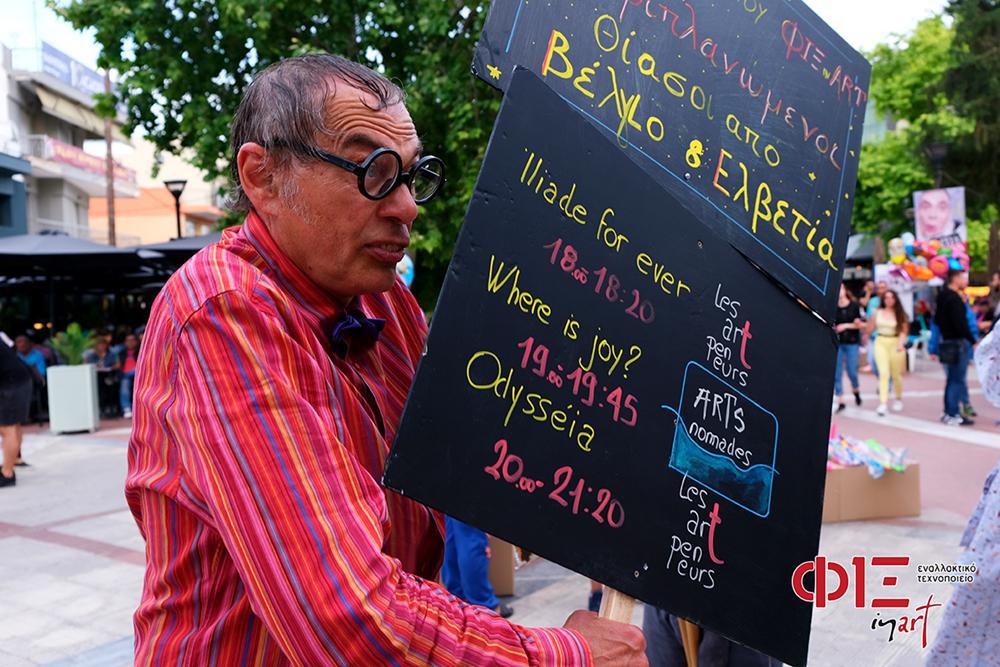 του ΦΙΞ in ART
περιπλανώμενοι
Θίασοι από
Βέλγιο & Ελβετία
Iliade for ever
18.00 18:20
Where is joy?
19.00 19:45
Odysséia
20.00 - 21:20
les
art
pen
peurs
ARTs
nomades
les
art
pen
peurs
ΦΙΞ εναλλακτικό
τεχνοποιείο
in art